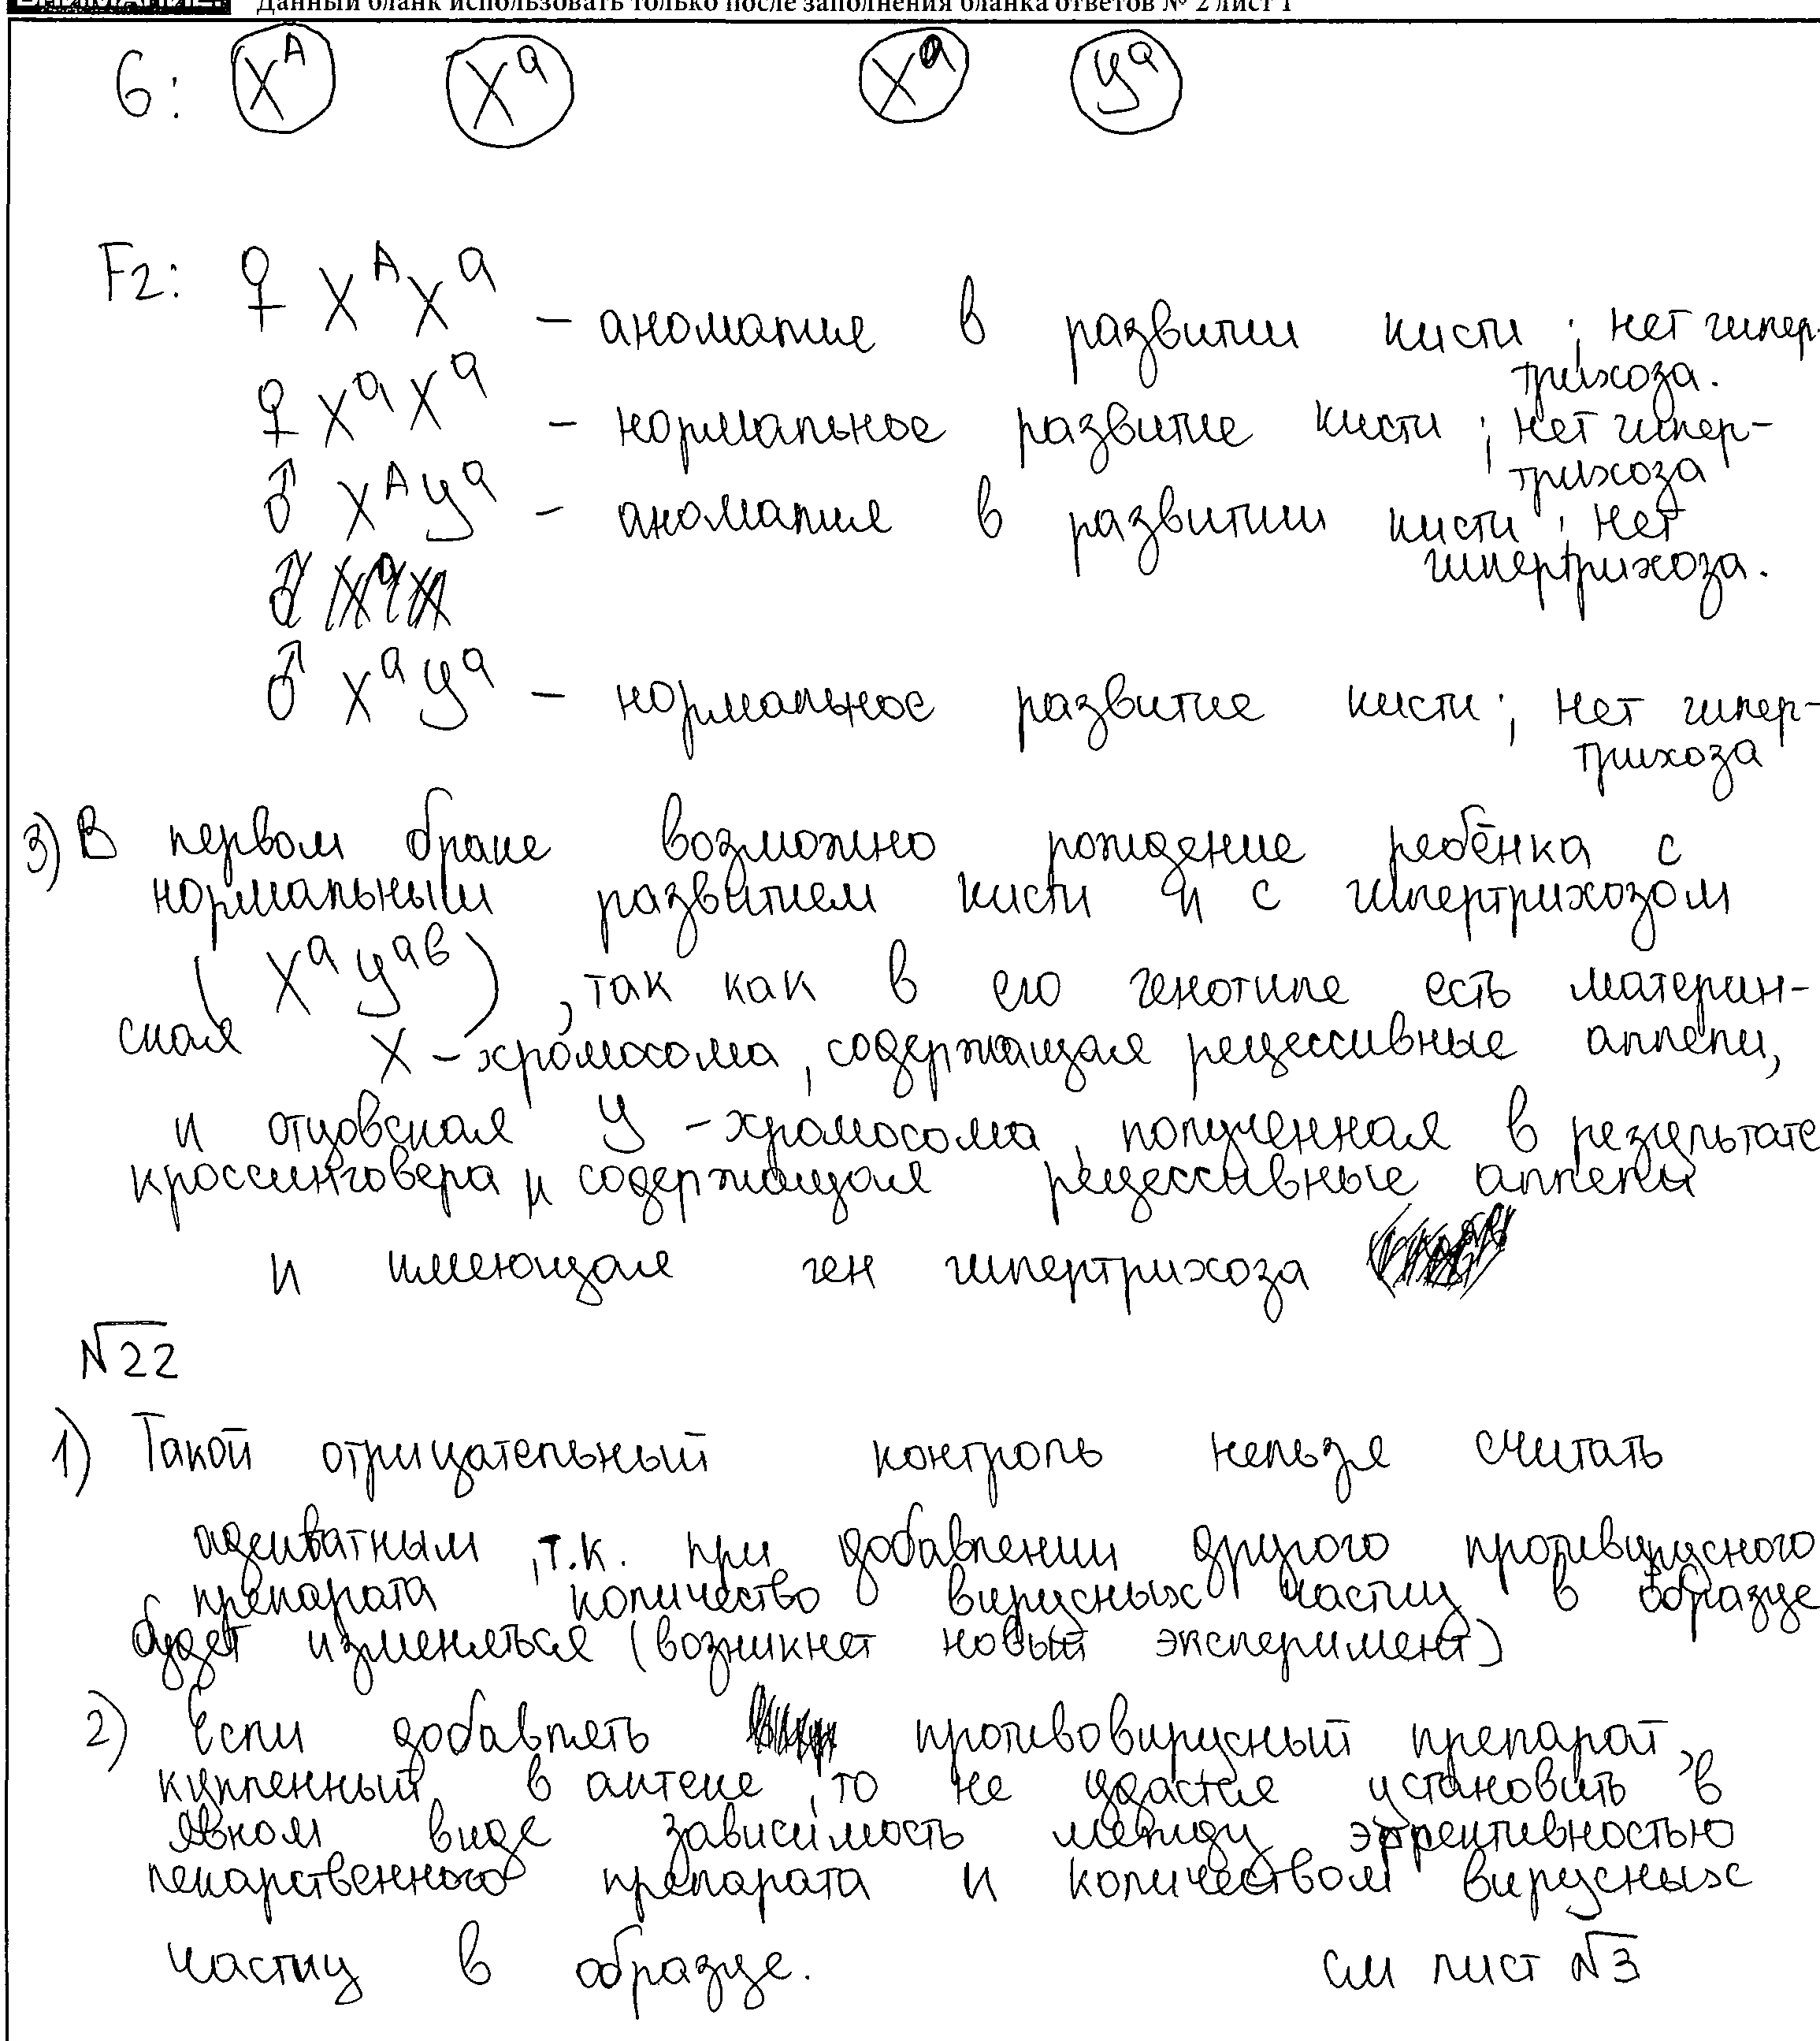 Данный бланк использовать только после заполнения бланка ответов № 2 лист 1
G: X^A X^a X^a У^a
F2: ♀ X^A X^a – аномалие в развитии кисти ; нет гипер-
трихоза.
♀ X^a X^a – нормальное развитие кисти ; нет гипер-
трихоза
♂ X^A У^a – аномалия в развитии кисти ; нет
гипертрихоза.
♂ X^a У^a – нормальное развитие кисти ; нет гипер-
трихоза
3) В первом браке возможно рождение ребёнка с
нормальным развитием кисти и с гипертрихозом
( X^a У^aв ) , так как в его генотипе есть материн-
ская X – хромосома, содержащая рецессивные аллели,
и отцовская У – хромосома, полученная в результате
кроссинговера и содержащая рецессивные аллели
и имеющая ген гипертрихоза
№22
1) Такой отрицательный контроль нельзя считать
адекватным , т.к. при добавлении другого противирусного
препарата количество вирусных частиц в образце
будет изменяться (возникнет новый эксперимент)
2) Если добавлять противовирусный препарат,
купленный в аптеке, то не удастся установить в
явном виде зависимость между эффективностью
лекарственного препарата и количеством вирусных
частиц в образце. см лист №3